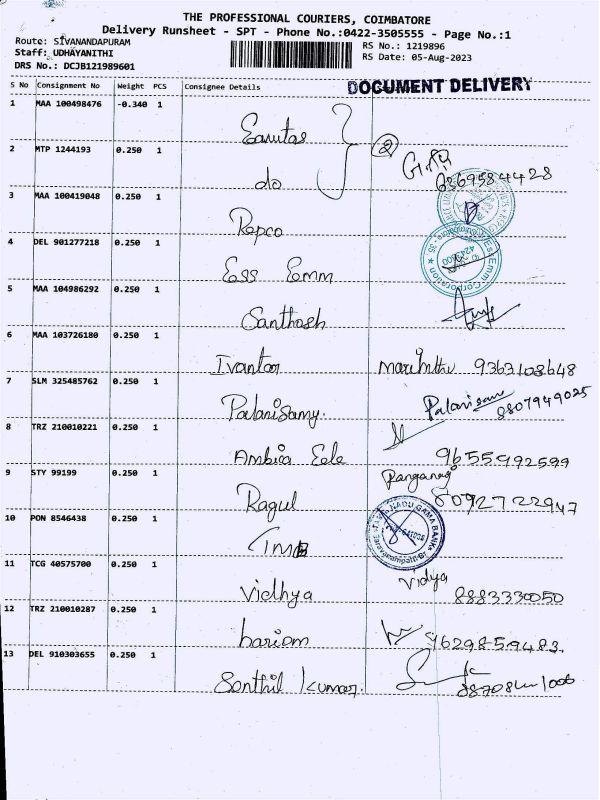 THE PROFESSIONAL COURIERS, COIMBATORE
Delivery Runsheet - SPT - Phone No.:0422-3505555 - Page No.:1
Route: SIVANANDAPURAM
RS No.: 1219896
Staff: UDHAYANITHI
RS Date: 05-Aug-2023
DRS No.: DCJB121989601
DOCUMENT DELIVERY
S No Consignment No Weight PCS Consignee Details
1 MAA 100498476 -0.340 1
2 MTP 1244193 0.250 1 do
6369584428
3 MAA 100419048 0.250 1 Repco
4 DEL 901277218 0.250 1 Ess Emm
5 MAA 104986292 0.250 1 Santhosh
6 MAA 103726180 0.250 1 Ivantor 9363108648
7 SLM 325485762 0.250 1 Palanisamy. Palanisamy 8807949025
8 TRZ 210010221 0.250 1 Ambica Eele 9655992599
9 STY 99199 0.250 1 Ragul Ranganag 8092722947
10 PON 8546438 0.250 1 TMB
11 TCG 40575700 0.250 1 Vidhya Vidya 8883330050
12 TRZ 210010287 0.250 1 hariom 9629859483
13 DEL 910303655 0.250 1 Senthil Kumar